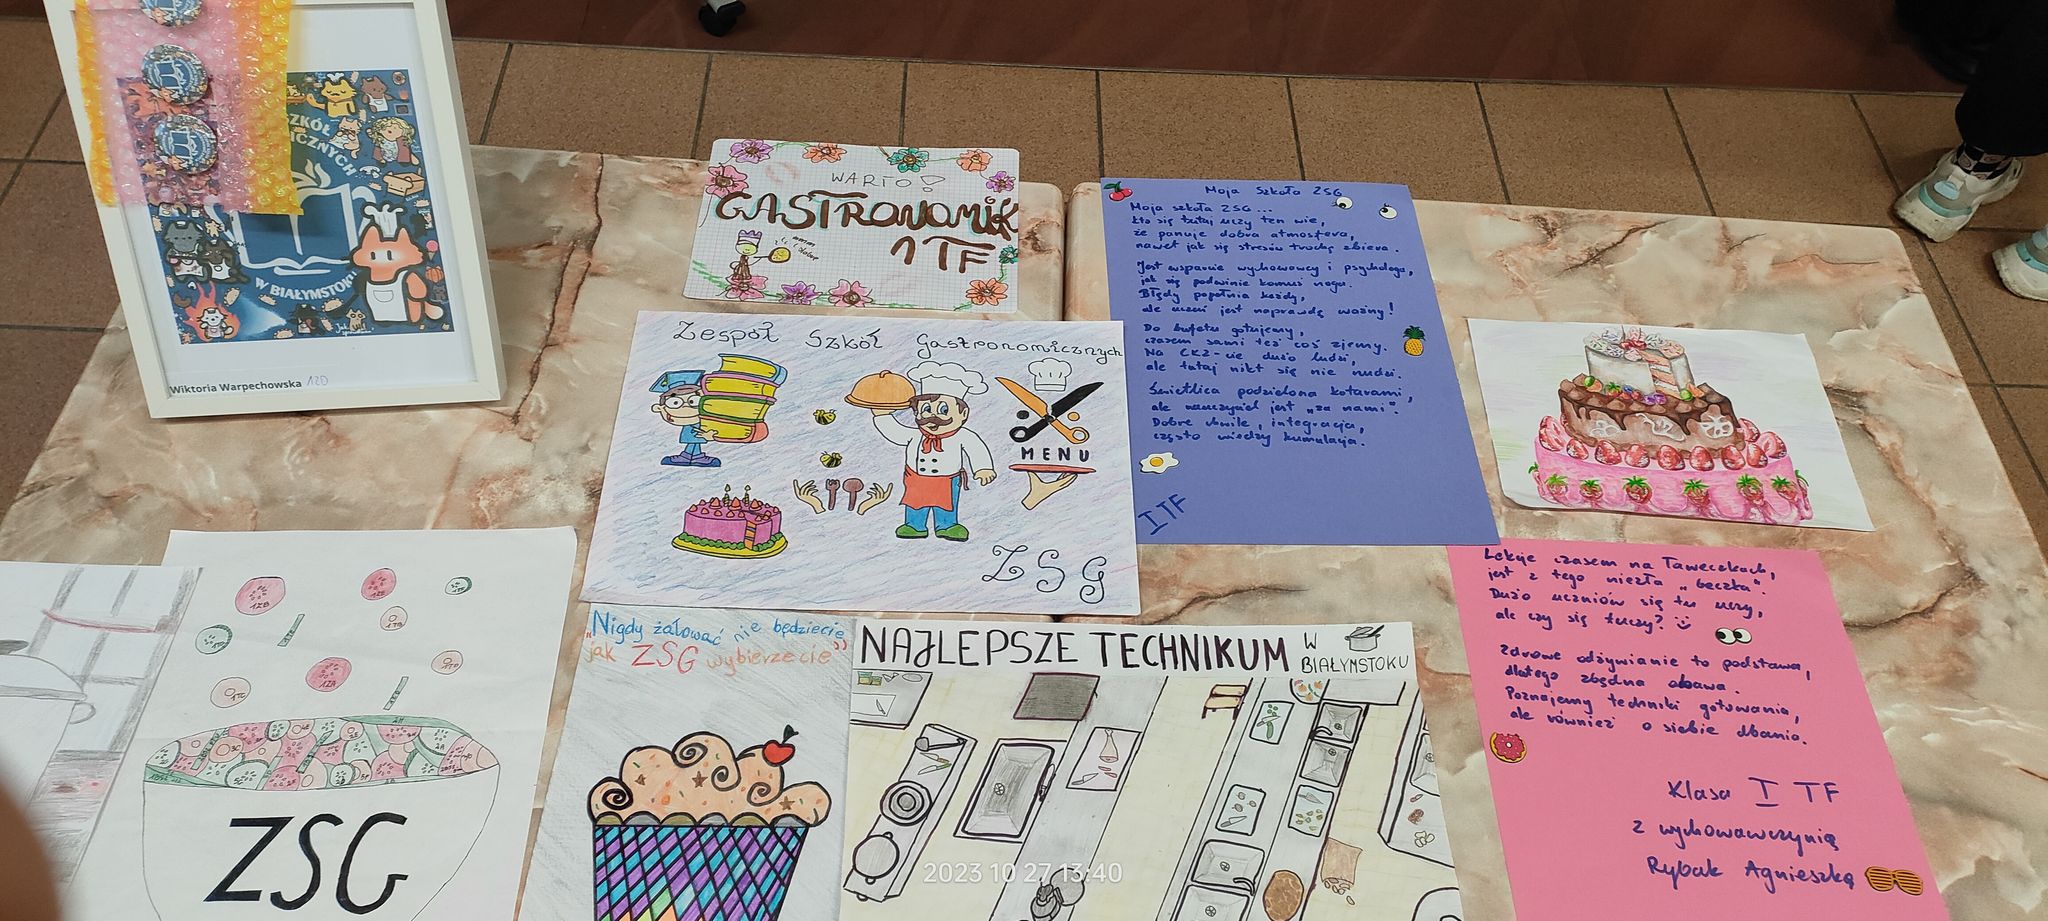 SZKÓŁ
ICZNYCH
W BIAŁYMSTOKU
Wiktoria Warpechowska 1ZD
WARTO!
GASTRONOMIK
1 TF
Moja Szkoła ZSG
Moja szkoła ZSG...
kto się tutaj uczy ten wie,
że panuje dobra atmosfera,
nawet jak się stresów trochę zbiera.
Jest wsparcie wychowawcy i psychologa,
jak się podwinie komuś noga.
Błędy popełnia każdy,
ale uczeń jest naprawdę ważny!
Do bufetu gotujemy,
czasem sami też coś zjemy.
Na CKZ-cie dużo ludzi,
ale tutaj nikt się nie nudzi.
Świetlica podzielona kotarami,
ale nauczyciel jest "za nami".
Dobre chwile, integracja,
często wiedzy kumulacja.
I TF
Zespół Szkół Gastronomicznych
MENU
ZSG
Lekcje czasem na Ławeczkach,
jest z tego niezła "beczka".
Dużo uczniów się tu uczy,
ale czy się tuczy?
Zdrowe odżywianie to podstawa,
dlatego zbędna obawa.
Poznajemy techniki gotowania,
ale również o siebie dbania.
Klasa I TF
z wychowawczynią
Rybak Agnieszką
1ZB
1ZA
ZSG
"Nigdy żałować nie będziecie,
jak ZSG wybierzecie"
NAJLEPSZE TECHNIKUM W BIAŁYMSTOKU
2023 10 27 13:40